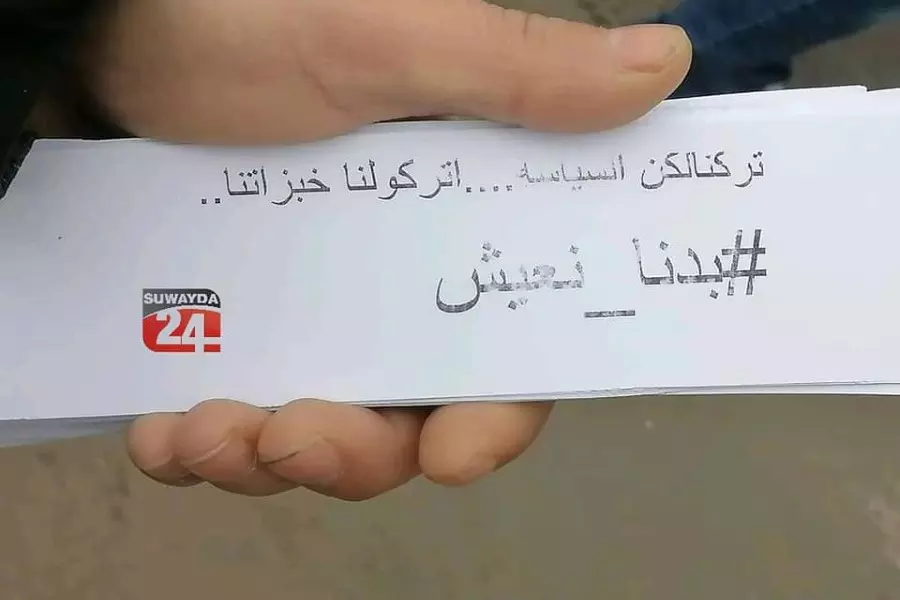 تركنالكن السياسه....اتركولنا خبزاتنا..
#بدنا_نعيش
SUWAYDA
24